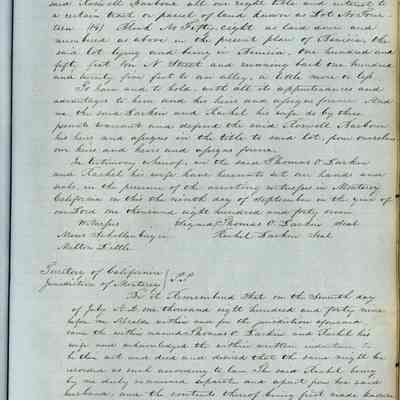 said Roswell Harbour all our right title and interest to
a certain tract or parcel of land known as Lot No Four
teen (14) Block No Fifty eight as laid down and
numbered as above in the present plan of Benicia the
said lot lying and being in Benicia, One hundred and
fifty feet on N Street and running back one hundred
and twenty five feet to an alley, a little more or less
To have and to hold, with all its appurtenances and
advantages to him and his heirs and assigns forever And
we the said Larkin and Rachel his wife do by these
presents warrant and defend the said Roswell Harbour
his heirs and assigns in the title to said lot, from ourselves
our heirs and heirs and assigns forever
In testimony whereof, we the said Thomas O Larkin
and Rachel his wife have hereunto set our hands and
seals, in the presence of the assisting witnesses in Monterey
California on this the month day of September in the year of
our Lord One thousand eight hundred and forty seven
Witnesses Signed Thomas O. Larkin Seal
Moses Schallenberger Rachel Larkin Seal
Milton Little
Territory of California
Jurisdiction of Monterey S.S.
Be it Remembered that on the Seventh day
of July A.D. one thousand eight hundred and forty nine
before me Alcalde within and for the jurisdiction aforesaid
came the within named Thomas O Larkin and Rachel his
wife and acknowledged the within written indenture to
be their act and deed and desired that the same might be
recorded as such according to law The said Rachel being
by me duly examined separate and apart from her said
husband, and the contents thereof being first made known